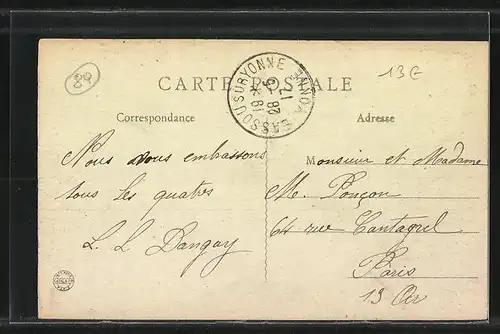 89
13€
CARTE POSTALE
BASSOU SUR YONNE
YONNE
18 *
28 -5
17
Correspondance
Adresse
Nous vous embrassons
tous les quatres
L. L. Dangay
Monsieur et Madame
M. Ponçon
64 rue Tantagrel
Paris
13 Arr